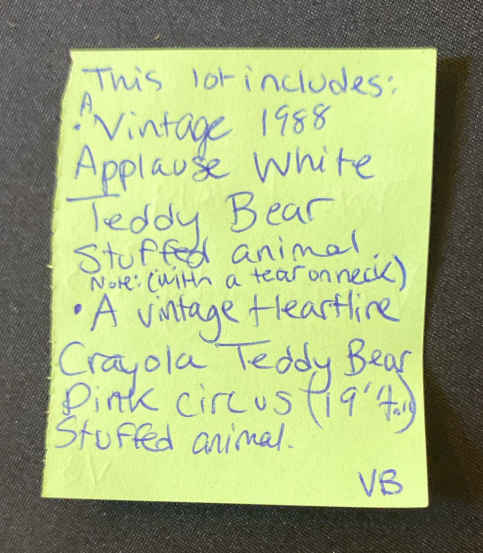 This lot includes:
• A Vintage 1988
Applause White
Teddy Bear
Stuffed animal.
Note: (with a tear on neck)
• A vintage Heartline
Crayola Teddy Bear
Pink circus (19" Tall)
Stuffed animal.
VB